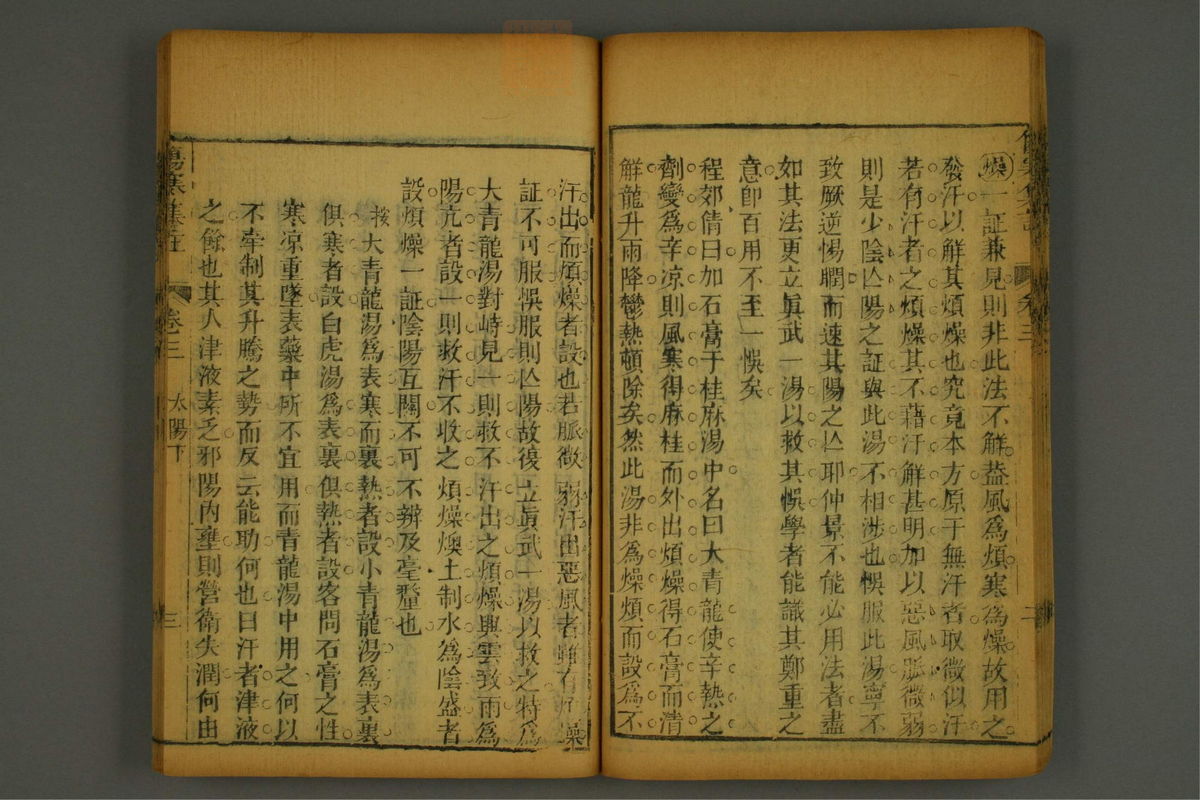 燥一証兼見則非此法不解葢風為煩寒為燥故用之
發汗以解其煩燥也究竟本方原于無汗者取微似汗
若有汗者之煩燥其不藉汗解甚明加以惡風脈微弱
則是少陰亾陽之証與此湯不相涉也悞服此湯寧不
致厥逆惕瞤而速其陽之亾耶仲景不能必用法者盡
如其法更立眞武一湯以救其悞學者能識其鄭重之
意卽百用不至一悞矣
程郊倩曰加石膏于桂麻湯中名曰大青龍使辛熱之
劑變為辛凉則風寒得麻桂而外出煩燥得石膏而清
解龍升雨降鬱熱頓除矣然此湯非為燥煩而設為不
汗出而煩燥者設也若脈微弱汗出惡風者雖有煩燥
証不可服悞服則亾陽故復立眞武一湯以救之特為
大青龍湯對峙見一則救不汗出之煩燥興雲致雨為
陽亢者設一則救汗不收之煩燥燠土制水為陰盛者
設煩燥一証陰陽互關不可不辨及毫釐也
按大青龍湯為表寒而裏熱者設小青龍湯為表裏
俱寒者設白虎湯為表裏俱熱者設客問石膏之性
寒凉重墜表藥中所不宜用而青龍湯中用之何以
不牽制其升騰之勢而反云能助何也曰汗者津液
之餘也其人津液素乏邪陽內壅則營衛失潤何由
傷寒集註 卷三 太陽下 三